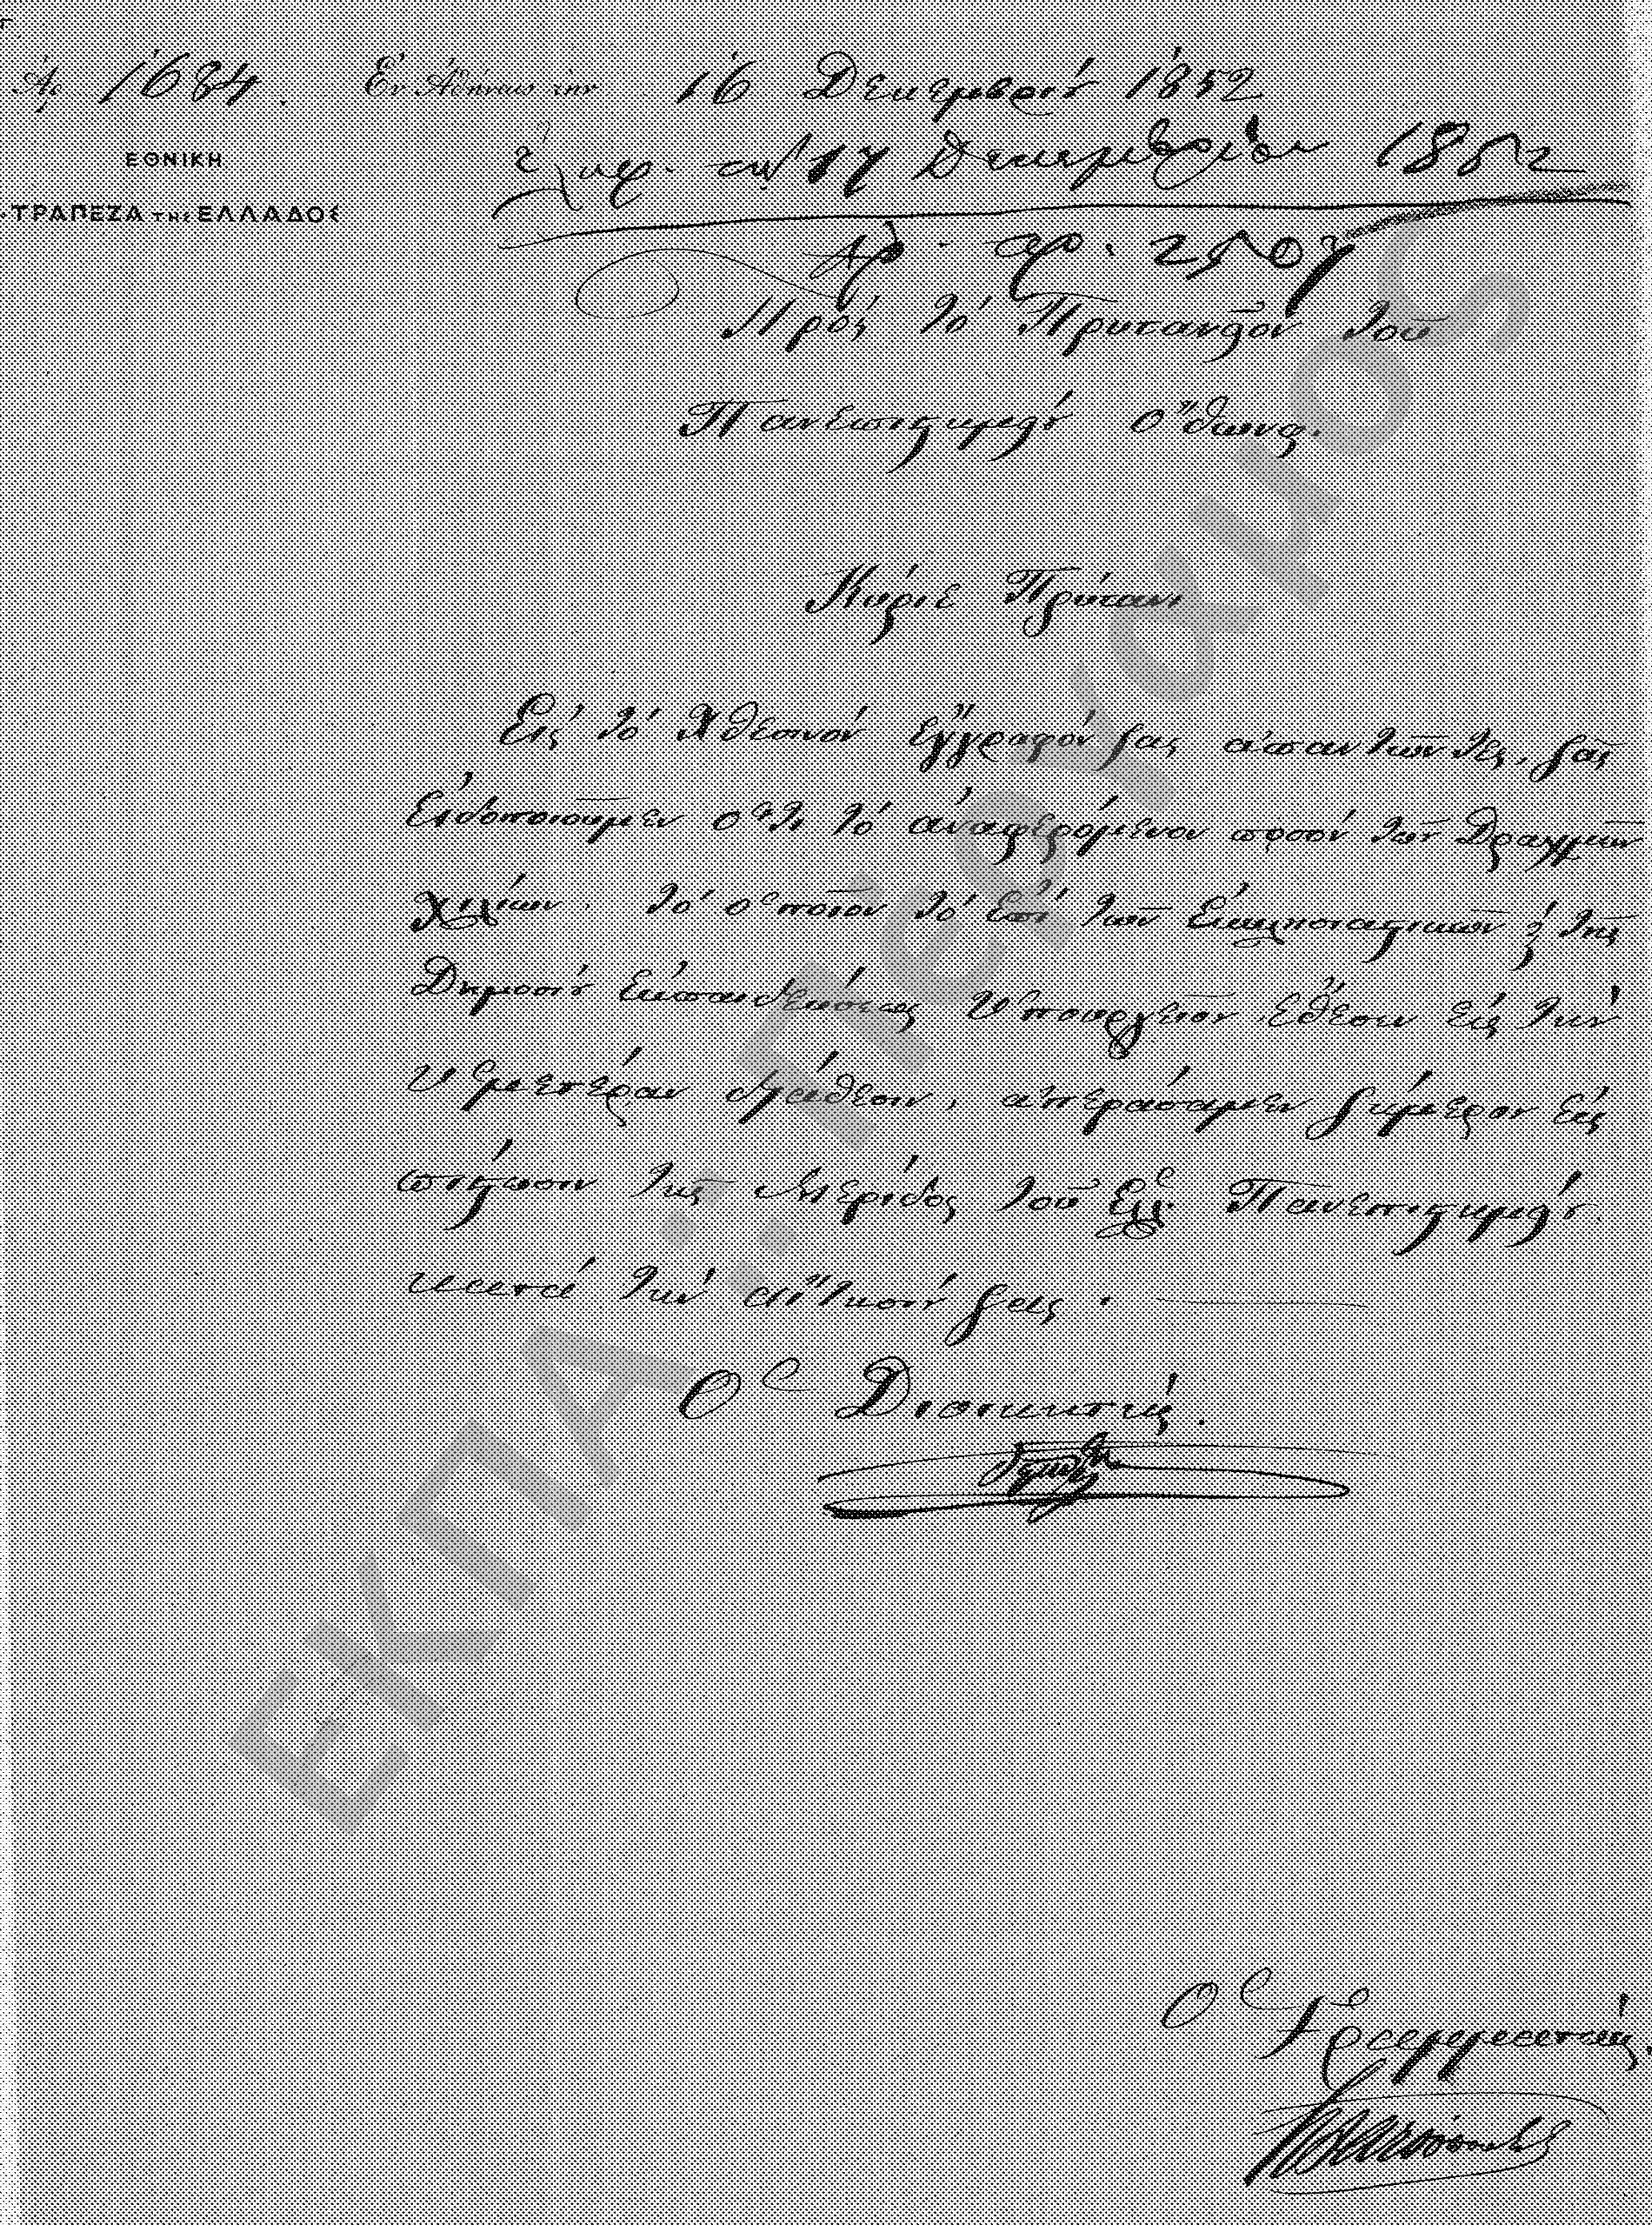 Ἀρ. 1684. Ἐν Ἀθήναις τὴν 16 Δεκεμβρίου 1852
ΕΘΝΙΚΗ
ΤΡΑΠΕΖΑ ΤΗΣ ΕΛΛΑΔΟΣ
17 Δεκεμβρίου 1852
Ἀρ. πρ. 2507
Πρὸς τὸ Πρυτανεῖον τοῦ
Πανεπιστημίου Ὄθωνος.
Κύριε Πρύτανι
Εἰς τὸ χθεσινόν ἔγγραφόν σας ἀπαντῶντες, σᾶς
εἰδοποιοῦμεν ὅτι τὸ ἀναφερόμενον ποσόν τῶν δραχμῶν
χιλίων, τὸ ὁποῖον τὸ ἐπὶ τῶν Ἐκκλησιαστικῶν ϗ τῆς
Δημοσίου Ἐκπαιδεύσεως Ὑπουργεῖον ἔθεσεν εἰς τὴν
ὑμετέραν διάθεσιν, ἀπεράσαμεν σήμερον εἰς
πίστωσιν τῆς Μερίδος τοῦ Ἑλλ. Πανεπιστημίου
κατὰ τὴν αἴτησίν σας.
Ὁ Διοικητής.
Ὁ Γραμματεύς.
ΕΚΠΑ